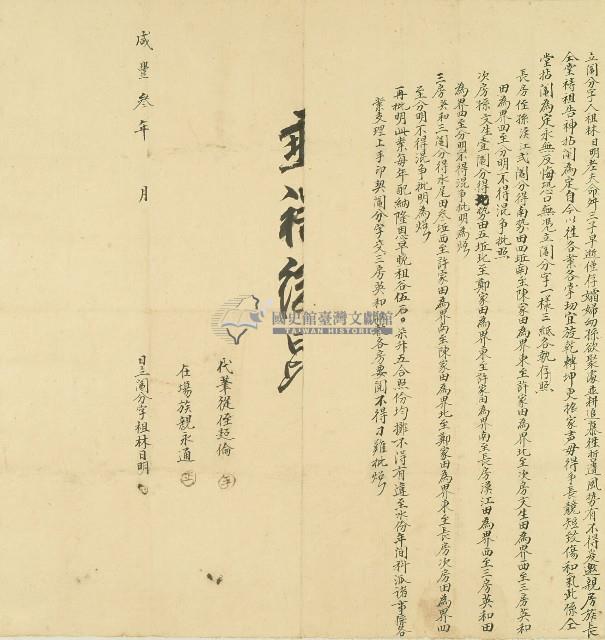 立鬮分字人祖林日明蓋夫命舛三子早逝僅存孀婦幼孫欲聚處並耕追慕往哲遺風勢有不得爰邀親房族長
仝堂待祖告神拈鬮為定自今以往各業各掌切宜旋乾轉坤更振家聲毋得爭長競短致傷和氣此係仝
堂拈鬮為定永無反悔恐口無憑立鬮分字一樣三紙各執存照
長房侄孫漢江貳鬮分得南勢田四坵南至陳家田為界東至許家田為界北至次房文生田為界西至三房英和
田為界四至分明不得混争批照
次房孫文生壹鬮分得北勢田五坵北至鄭家田為界東至許家田為界南至長房漢江田為界西至三房英和田
為界四至分明不得混争批明為炤
三房英和三鬮分得水尾田叁坵西至許家田為界南至陳家田為界北至鄭家田為界東至長房次房田為界四
至分明不得混争批明為炤
再批明此業每年配納隆恩早晚租谷伍石〇柒升五合照份均攤不得有違至水份年間科派諸事
業支理上手印契鬮分字交三房英和 各房要閱不得刁難批炤
代筆從侄超倫
在場族親永通
日立鬮分字祖林日明
咸豐叁年 月
國史館臺灣文獻館
TAIWAN HISTORICA